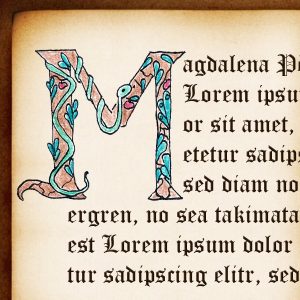 Magdalena
Lorem
or sit amet,
etetur
sed diam
ergren, no sea takimata
est Lorem ipsum dolor
tur sadipscing elitr, sed